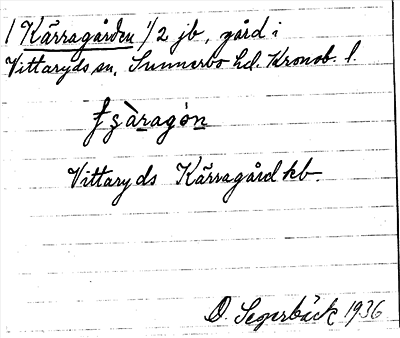 1 Kärragården 1/2 jb, gård i
Vittaryds sn, Sunnerbo hd. Kronob. l.
Vittaryds Kärragård kb.
D. Segerbäck 1936